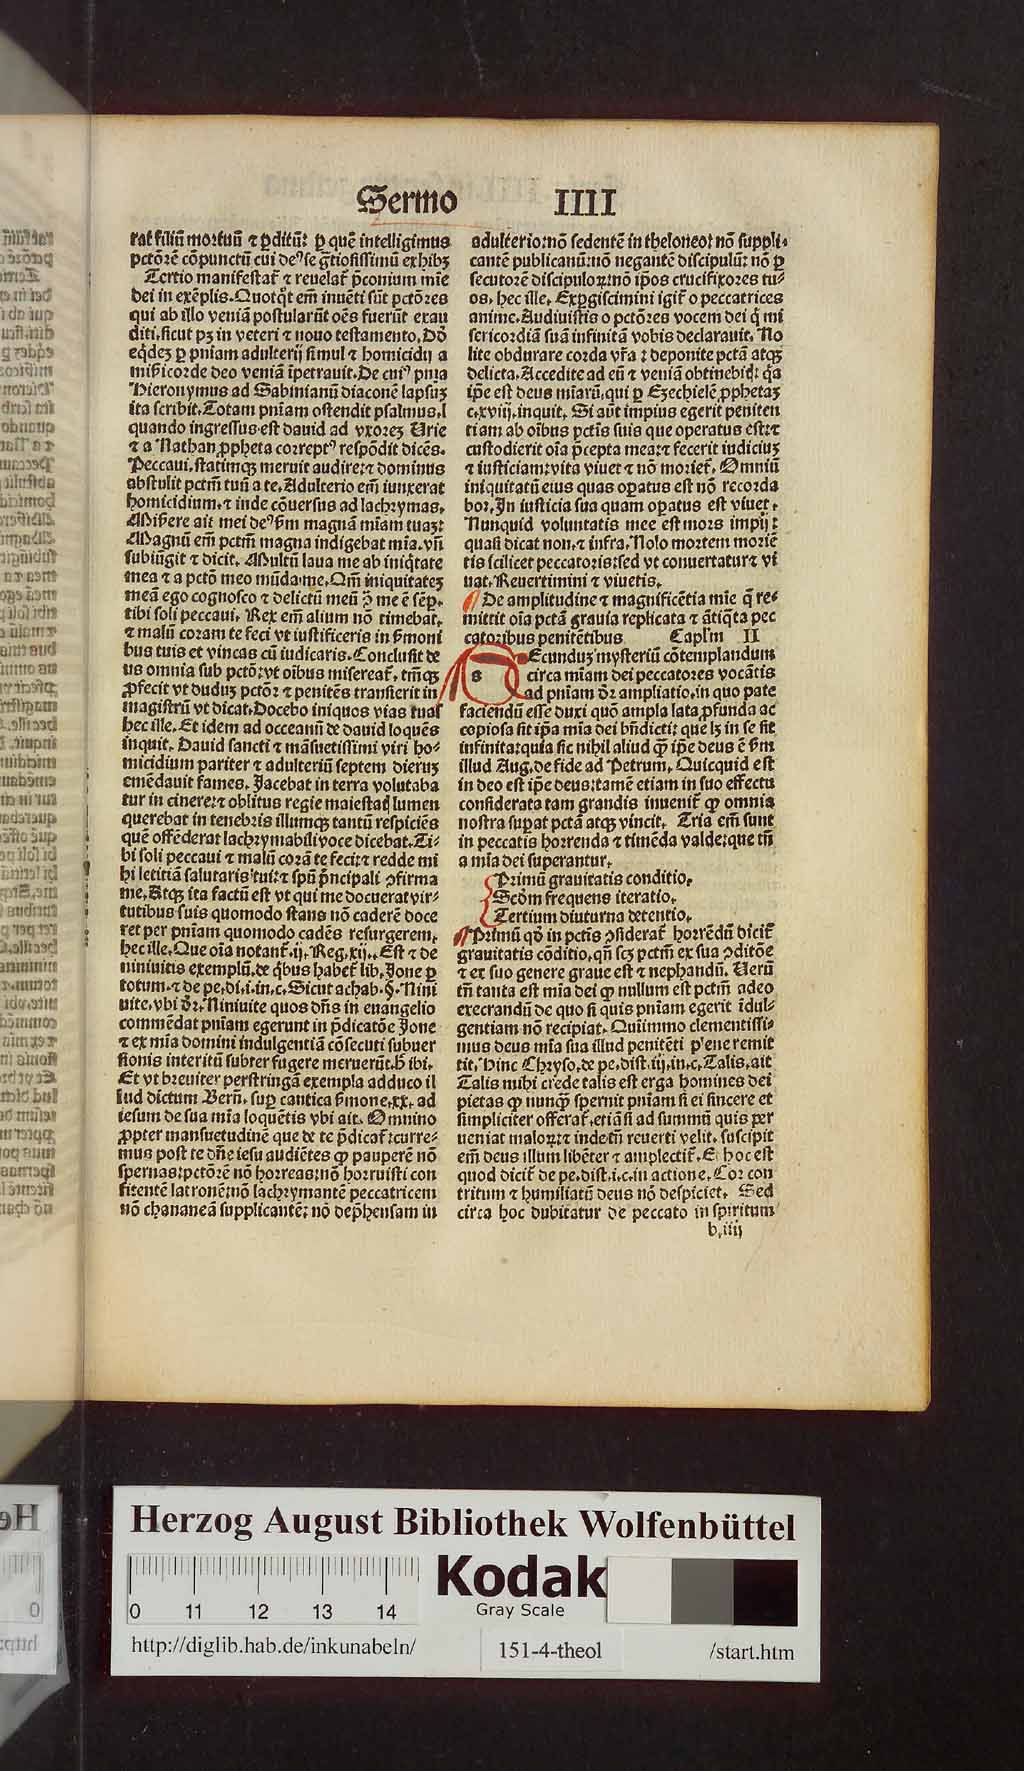 Sermo IIII
rat filiū mortuū ⁊ ꝑditū: ꝑ quē intelligimus
pctōrē cōpunctū cui deꝰ se gr̄tiosissimū exhibꝫ
Tertio manifestat̄ ⁊ reuelat̄ p̄conium mīe
dei in exēplis. Quotqt̄ em̄ inuēti sūt pctōres
qui ab illo veniā postularūt oēs fuerūt exau
diti. sicut pꝫ in veteri ⁊ nouo testamento. Dō
eqdeꝫ ꝑ pniam adulterij simul ⁊ homicidij a
miẜicorde deo veniā īpetrauit. De cuiꝰ pnīa
Hieronymus ad Sabinianū diaconē lapsuꝫ
ita scribit. Totam pniam ostendit psalmus. l
quando ingressus est dauid ad vxoreꝫ Urie
⁊ a Nathan ꝓpheta correptꝰ respōdit dicēs.
Peccaui. statimqꝫ meruit audire: ⁊ dominus
abstulit pctm̄ tuū a te. Adulterio em̄ iunxerat
homicidium. ⁊ inde cōuersus ad lachrymas.
Miẜere ait mei deꝰ ẜm magnā mīam tuaꝫ:
Magnū em̄ pctm̄ magna indigebat mīa. vn̄
subiūgit ⁊ dicit. Multū laua me ab iniqtate
mea ⁊ a pctō meo mūda me. Qm̄ iniquitateꝫ
meā ego cognosco ⁊ delictū meū ꝯ̄ me ē sēꝑ.
tibi soli peccaui. Rex em̄ alium nō timebat.
⁊ malū coram te feci vt iustificeris in ẜmoni
bus tuis et vincas cū iudicaris. Conclusit de
us omnia sub pctō: vt oībus misereat̄. tm̄qꝫ
ꝓfecit vt duduꝫ pctōr ⁊ penitēs transierit in
magistrū vt dicat. Docebo iniquos vias tuas
hec ille. Et idem ad occeanū de dauid loquēs
inquit. Dauid sancti ⁊ māsuetissimi viri ho-
micidium pariter ⁊ adulteriū septem dieruꝫ
emēdauit fames. Jacebat in terra volutaba
tur in cinere: ⁊ oblitus regie maiestatꝭ lumen
querebat in tenebris illumqꝫ tantū respiciēs
quē offēderat lachrymabili voce dicebat. Ti-
bi soli peccaui ⁊ malū corā te feci: ⁊ redde mi
hi letitiā salutaris tui: ⁊ spū p̄ncipali ꝯfirma
me. Atqꝫ ita factū est vt qui me docuerat vir-
tutibus suis quomodo stans nō caderē doce
ret per pniam quomodo cadēs resurgerem.
hec ille. Que oīa notant̄. ij. Reg. xij. Est ⁊ de
niniuitis exemplū. de qbus habet̄ lib. Jone ꝑ
totum. ⁊ de pe. di. i. in. c. Sicut achab. §. Nini
uite. vbi dr̄. Niniuite quos dn̄s in euangelio
commēdat pniam egerunt in p̄dicatōe Jone
⁊ ex mīa domini indulgentiā cōsecuti subuer
sionis interitū subter fugere meruerūt. h̄ ibi.
Et vt breuiter perstringā exempla adduco il
lud dictum Bern̄. suꝑ cantica ẜmone. xx. ad
iesum de sua mīa loquētis vbi ait. Omnino
ꝓpter mansuetudinē que de te p̄dicat̄: curre-
mus post te dn̄e iesu audiētes ꝙ pauperē nō
spernas: pctōrē nō horreas: nō horruisti con
fitentē latronē: nō lachrymantē peccatricem
nō chananeā supplicantē: nō dep̄hensam in
adulterio: nō sedentē in theloneo: nō suppli-
cantē publicanū: nō negantē discipulū: nō ꝑ
secutorē discipuloꝝ: nō ip̄os crucifixores tu-
os. hec ille. Expgiscimini igit̄ o peccatrices
anime. Audiuistis o pctōres vocem dei q̄ mi
sericordiā suā infinitā vobis declarauit. No
lite obdurare corda vr̄a: deponite pctā atqꝫ
delicta. Accedite ad eū ⁊ veniā obtinebitꝭ: qꝛ
ip̄e est deus miarū. qui ꝑ Ezechielē ꝓphetaꝫ
c. xviij. inquit. Si aūt impius egerit peniten
tiam ab oībus pctīs suis que operatus est: ⁊
custodierit oīa p̄cepta mea: ⁊ fecerit iudiciuꝫ
⁊ iusticiam: vita viuet ⁊ nō moriet̄. Omniū
iniquitatū eius quas oꝑatus est nō recorda
bor. In iusticia sua quam oꝑatus est viuet.
Nunquid voluntatis mee est mors impij:
quasi dicat non. ⁊ infra. Nolo mortem moriē
tis scilicet peccatoris: sed vt conuertatur ⁊ vi
uat. Reuertimini ⁊ viuetis.
¶ De amplitudine ⁊ magnificētia mīe q̄ re-
mittit oīa pctā grauia replicata ⁊ ātiqta pec
catoribus penitētibus Caplm̄ II
s Ecunduꝫ mysteriū cōtemplandum
circa mīam dei peccatores vocātis
ad pniam dr̄ ampliatio. in quo pate
faciendū esse duxi quō ampla lata ꝓfunda ac
copiosa sit ip̄a mīa dei bn̄dicti: que lꝫ in se sit
infinita: quia sic nihil aliud ꝙ̄ ip̄e deus ē ẜm
illud Aug. de fide ad Petrum. Quicquid est
in deo est ip̄e deus: tamē etiam in suo effectu
considerata tam grandis inuenit̄ ꝙ omnia
nostra suꝑat pctā atqꝫ vincit. Tria em̄ sunt
in peccatis horrenda ⁊ timēda valde: que tn̄
a mīa dei superantur.
Primū grauitatis conditio.
Scd̄m frequens iteratio.
Tertium diuturna detentio.
¶ Primū qd̄ in pctīs ꝯsiderat̄ horrēdū dicit̄
grauitatis cōditio. qn̄ scꝫ pctm̄ ex sua ꝯditōe
⁊ ex suo genere graue est ⁊ nephandū. Uerū
tn̄ tanta est mīa dei ꝙ nullum est pctm̄ adeo
execrandū de quo si quis pniam egerit īdul-
gentiam nō recipiat. Quīimmo clementissi-
mus deus mīa sua illud penitēti plene remit
tit. Hinc Chryso. de pe. dist. iij. in. c. Talis. ait
Talis mihi crede talis est erga homines dei
pietas ꝙ nunꝙ̄ spernit pniam si ei sincere et
simpliciter offerat̄. etiā si ad summū quis per
ueniat maloꝝ: ⁊ inde tn̄ reuerti velit. suscipit
em̄ deus illum libēter ⁊ amplectit̄. Et hoc est
quod dicit̄ de pe. dist. i. c. in actione. Cor con
tritum ⁊ humiliatū deus nō despiciet. Sed
circa hoc dubitatur de peccato in spiritum
b. iiij
Herzog August Bibliothek Wolfenbüttel
Kodak
Gray Scale
0 11 12 13 14
http://diglib.hab.de/inkunabeln/
151-4-theol
/start.htm